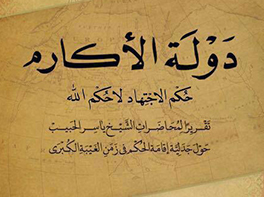 دَوْلَة الأكارم
حُكم الاجْتِهاد لا حُكم الله
تَقْريرًا لمُحَاضَراتِ الشَّيْخ يَاسِر الحَبِيب
حَوْلَ جَدَليَّة إقامَة الحُكْم في زَمَنِ الغَيْبَةِ الكُبْرَى